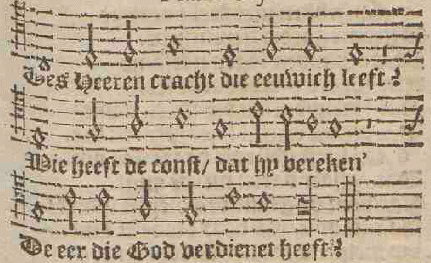 Des Heeren cracht die eeuwich leeft?
Wie heeft de const/ dat hy vereken'
De eer die God verdienet heeft?